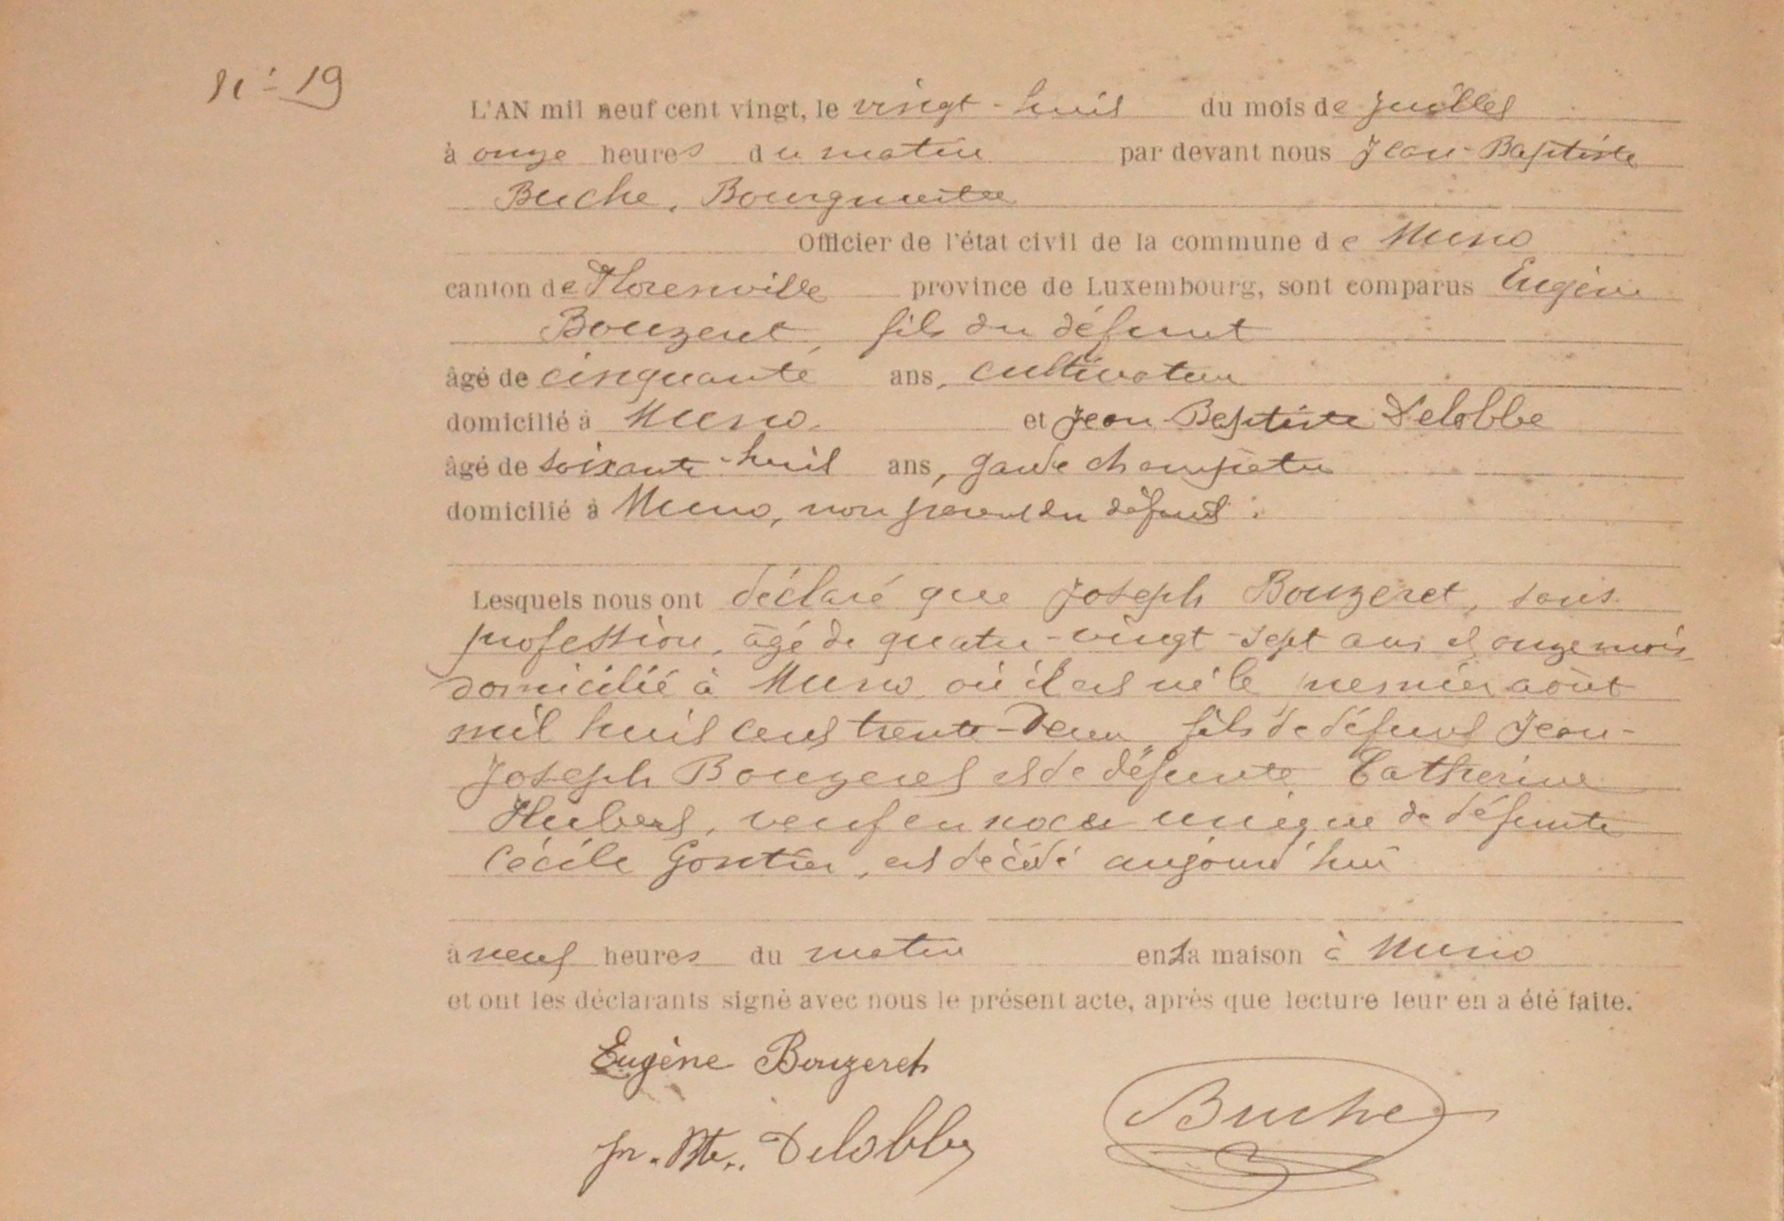 N° 19
L'AN mil neuf cent vingt, le vingt-huit du mois de juillet
à onze heures du matin par devant nous Jean-Baptiste
Buche, Bourgmestre
Officier de l'état civil de la commune de Muno
canton de Florenville province de Luxembourg, sont comparus Eugène
Bouzeret, fils du défunt
âgé de cinquante ans, cultivateur
domicilié à Muno. et Jean Baptiste Delobbe
âgé de soixante-huit ans, garde champêtre
domicilié à Muno, non parent du défunt.
Lesquels nous ont déclaré que Joseph Bouzeret, sans
profession, âgé de quatre-vingt-sept ans et onze mois
domicilié à Muno où il est né le premier août
mil huit cent trente-deux fils de défunt Jean-
Joseph Bouzeret et de défunte Catherine
Hubert, veuf en noces unique de défunte
Cécile Gontier, est décédé aujourd'hui
à neuf heures du matin en sa maison à Muno
et ont les déclarants signé avec nous le présent acte, après que lecture leur en a été faite.
Eugène Bouzeret
Jn. Bte. Delobbe
Buche